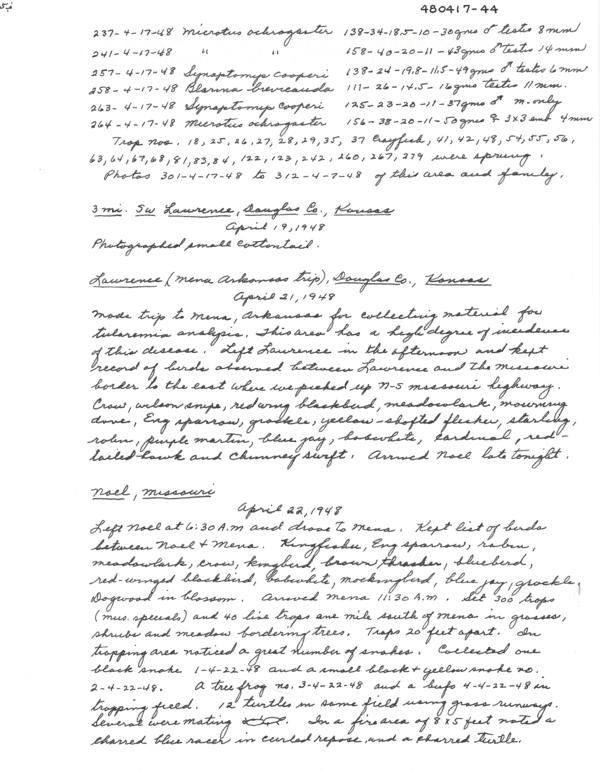 480417-44
237-4-17-48 Microtus ochrogaster 138-34-18.5-10-30gms ♂ testes 8mm
241-4-17-48 " " 158-40-20-11-43gms ♂ testes 14mm
257-4-17-48 Synaptomys cooperi 138-24-19.8-11.5-49gms ♂ testes 6mm
258-4-17-48 Blarina brevicauda 111-26-14.5-16gms testes 11mm.
263-4-17-48 Synaptomys cooperi 125-23-20-11-37gms ♂ m. only
264-4-17-48 Microtus ochrogaster 156-38-20-11-50gms ♀ 3x3 emb 4mm
Trap nos. 18, 25, 26, 27, 28, 29, 35, 37 Crayfish, 41, 42, 48, 54, 55, 56,
63, 64, 67, 68, 81, 83, 84, 122, 123, 242, 260, 267, 279 were sprung.
Photos 301-4-17-48 to 312-4-7-48 of this area and family.
3 mi. SW Lawrence, Douglas Co., Kansas
April 19, 1948
Photographed small cottontail.
Lawrence, (Mena Arkansas trip), Douglas Co., Kansas
April 21, 1948
Made trip to Mena, Arkansas for collecting material for
tularemia analysis. This area has a high degree of incidence
of this disease. Left Lawrence in the afternoon and kept
record of birds observed between Lawrence and the Missouri
border to the east where we picked up N-S Missouri highway.
Crow, wilson snipe, redwing blackbird, meadowlark, mourning
dove, Eng sparrow, grackle, yellow-shafted flicker, starling,
robin, purple martin, blue jay, bobwhite, cardinal, red-
tailed hawk and chimney swift. Arrived Noel late tonight.
Noel, Missouri
April 22, 1948
Left Noel at 6:30 A.M and drove to Mena. Kept list of birds
between Noel + Mena. Kingfisher, Eng sparrow, robin,
meadowlark, crow, kingbird, brown thrasher, bluebird,
red-winged blackbird, bobwhite, mockingbird, blue jay, grackle.
Dogwood in blossom. Arrived Mena 11:30 A.M. Set 300 traps
(mus. specials) and 40 live traps one mile south of Mena in grasses,
shrubs and meadow bordering trees. Traps 20 feet apart. In
trapping area noticed a great number of snakes. Collected one
black snake 1-4-22-48 and a small black + yellow snake no.
2-4-22-48. A tree frog no. 3-4-22-48 and a bufo 4-4-22-48 in
trapping field. 12 turtles in same field using grass runways.
Several were mating. In a fire area of 8x5 feet noted a
charred blue racer in curled repose, and a charred turtle.